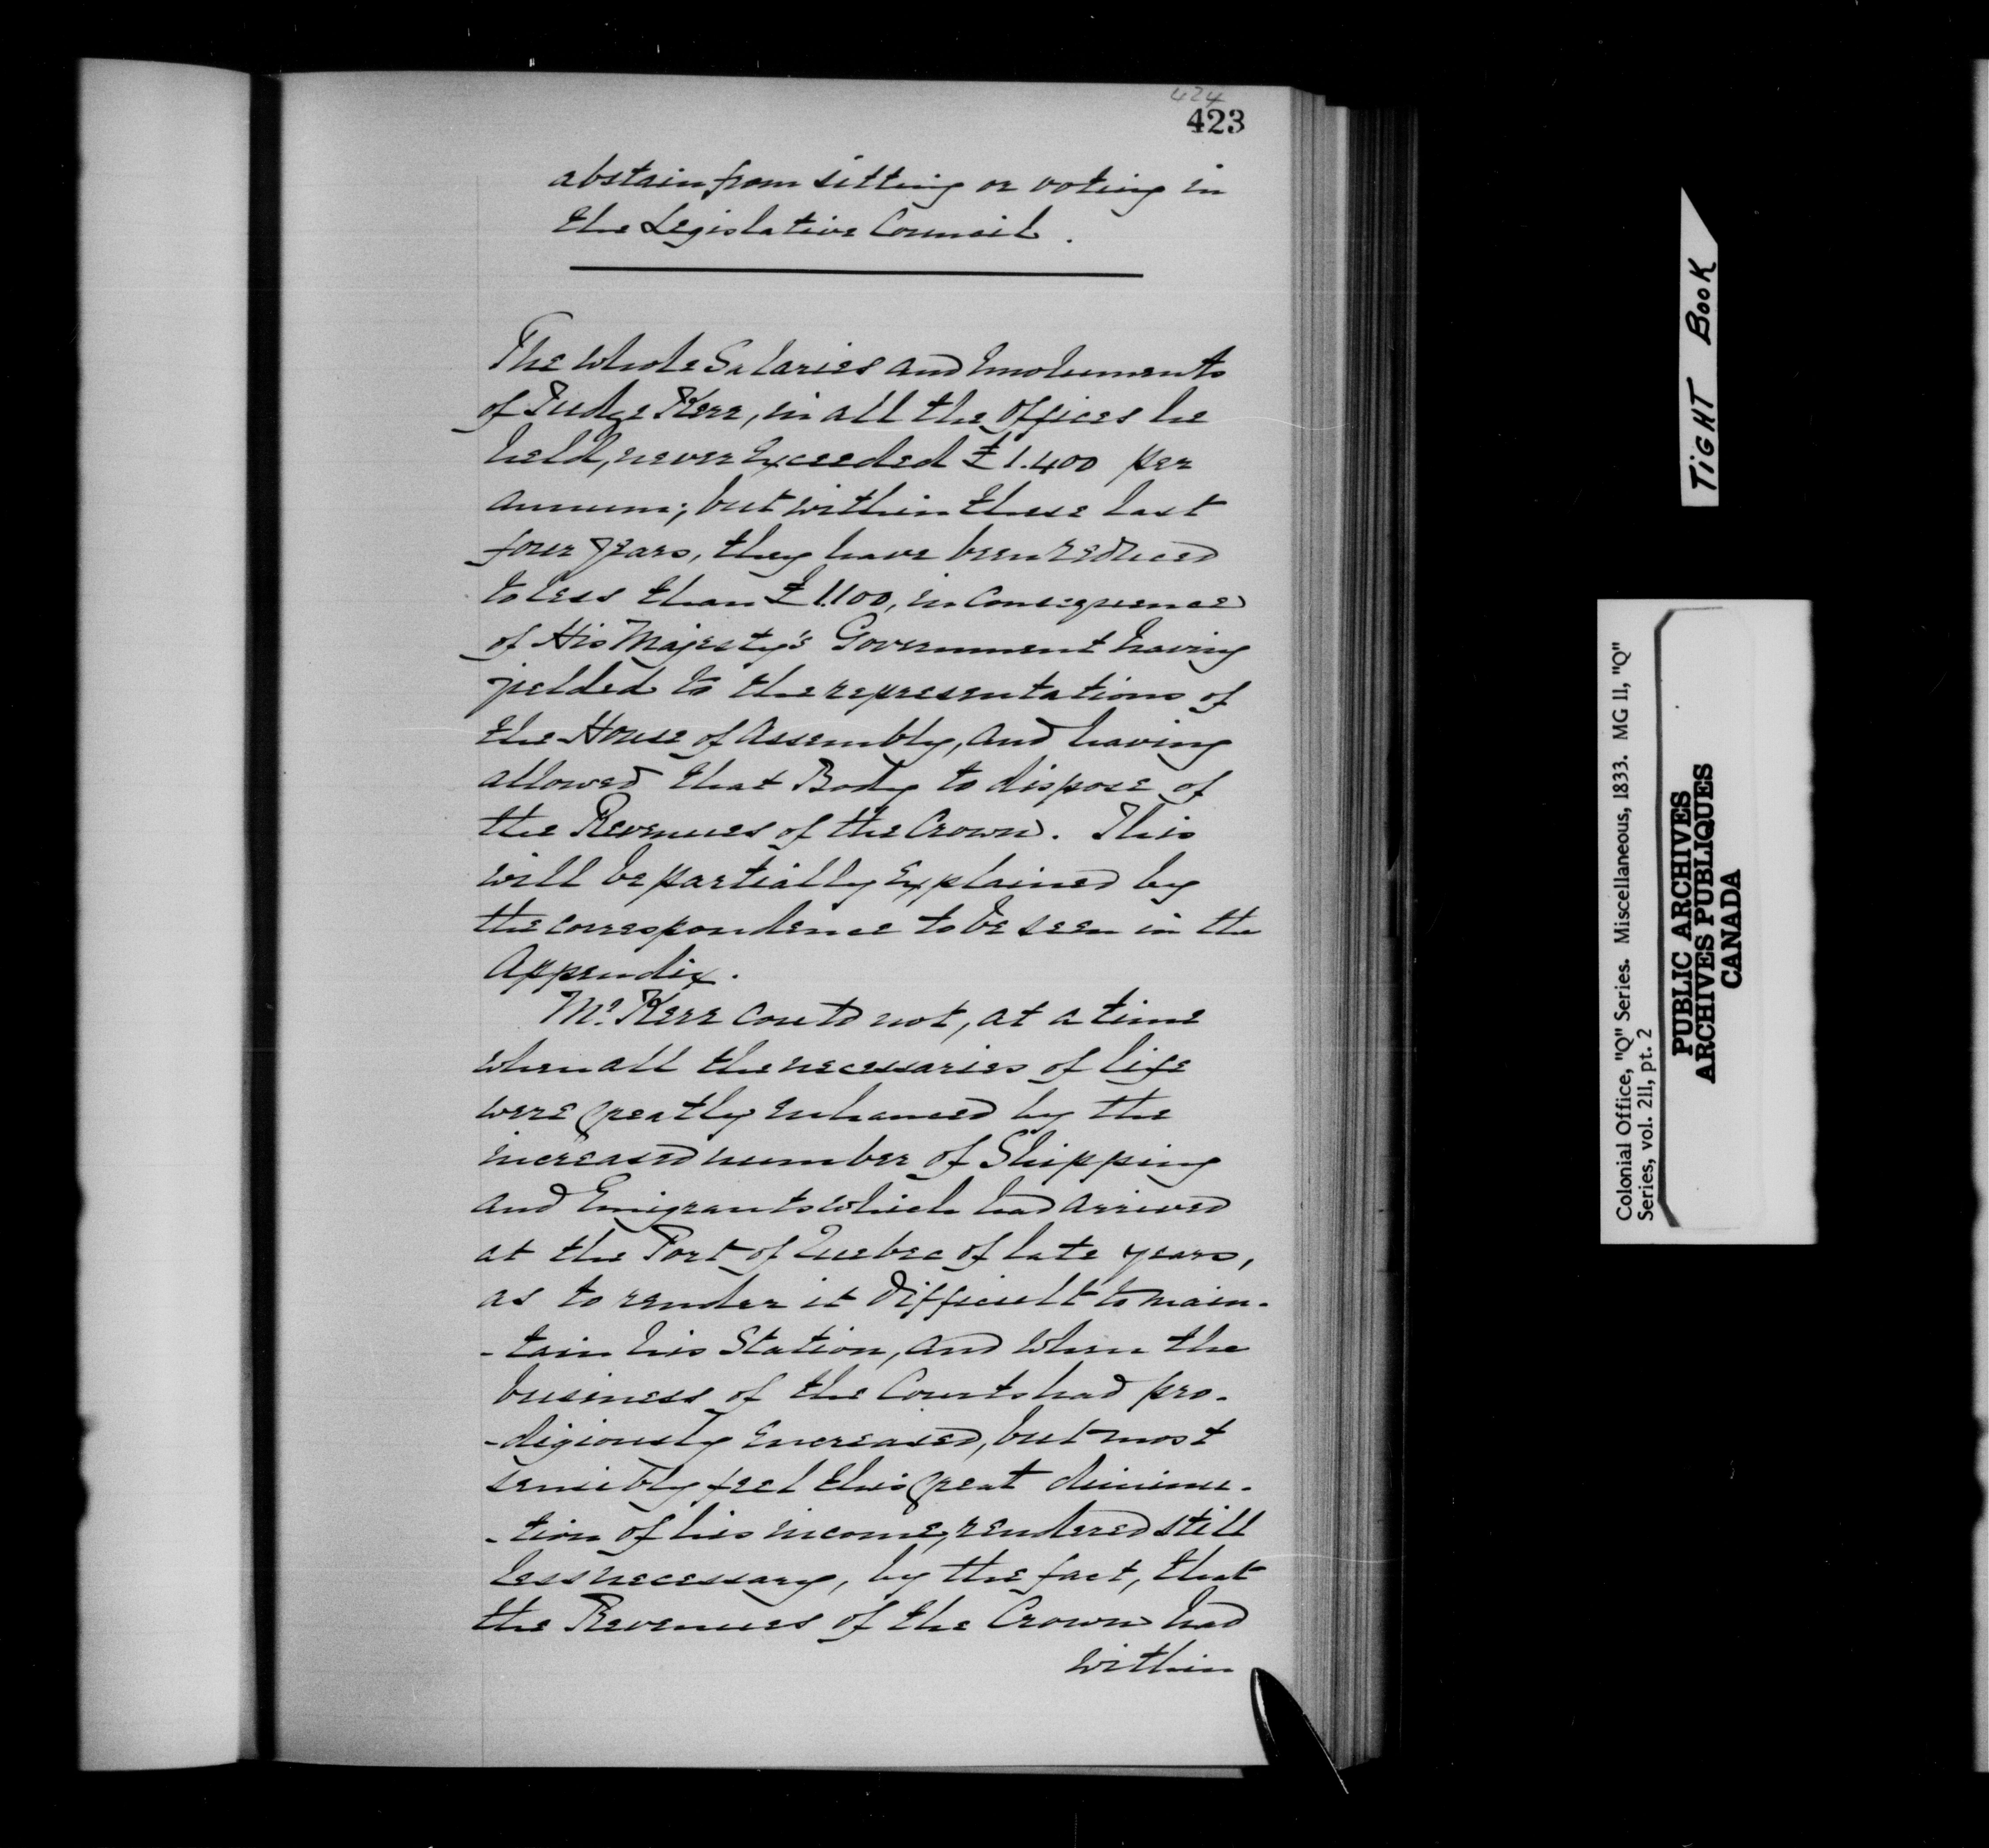 424
423
abstain from sitting or voting in
the Legislative Council.
The whole Salaries and Emoluments
of Judge Kerr, in all the offices he
held, never Exceeded £1.400 per
annum; but within these last
four years, they have been reduced
to less than £1.100, in consequence
of His Majesty's Government having
yielded to the representations of
the House of Assembly, and having
allowed that Body to dispose of
the Revenues of the Crown. This
will be partially Explained by
the correspondence to be seen in the
Appendix.
Mr. Kerr could not, at a time
when all the necessaries of life
were greatly enhanced by the
increased number of Shipping
and Emigrants which had arrived
at the Port of Quebec of late years,
as to render it difficult to main-
-tain his Station, and when the
business of the Courts had pro-
-digiously Encreased, but most
sensibly feel this great diminu-
-tion of his income, rendered still
less necessary, by the fact, that
the Revenues of the Crown had
within
TIGHT BOOK
Colonial Office, "Q" Series. Miscellaneous, 1833. MG 11, "Q"
Series, vol. 211, pt. 2
PUBLIC ARCHIVES
ARCHIVES PUBLIQUES
CANADA